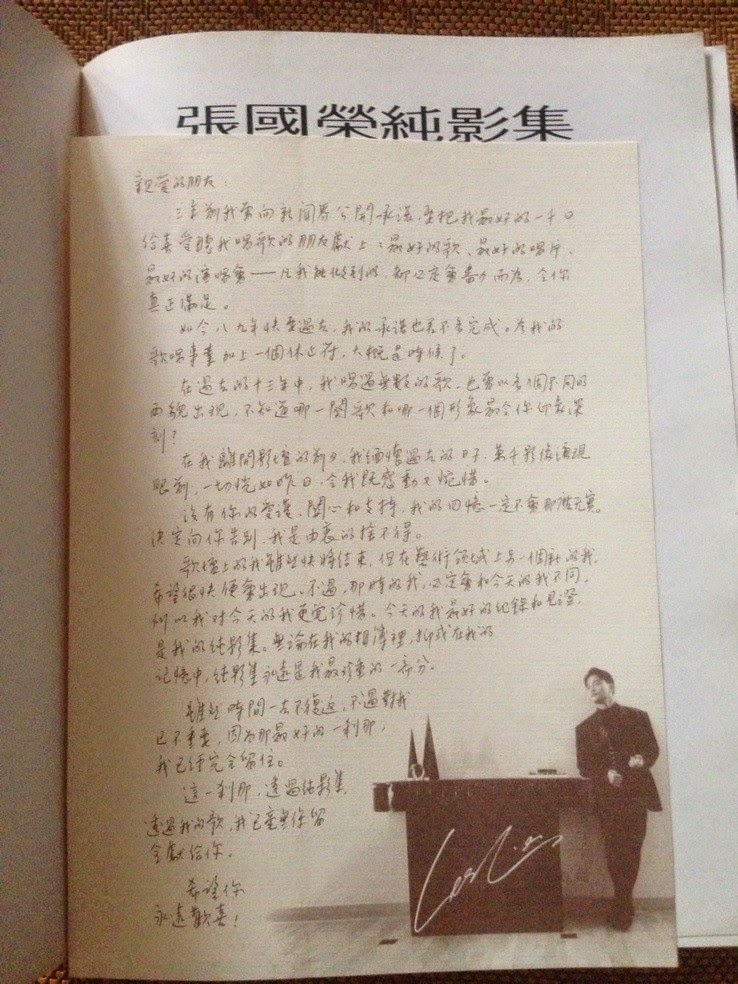 張國榮純影集
親愛的朋友：
三年前我曾向新聞界公開承諾，要把我最好的一千日
給喜愛聽我唱歌的朋友獻上：最好的歌、最好的唱片、
最好的演唱會——凡我能做到的，都必定會盡力而為，令你
真正滿足。
如今八九年快要過去，我的承諾也差不多完成。為我的
歌唱事業加上一個休止符，大概是時候了。
在過去的十三年中，我唱過無數的歌，也曾以多個不同的
面貌出現，不知道哪一闋歌和哪一個形象最令你印象深
刻？
在我離開影壇的前夕，我緬懷過去的日子，萬千影像湧現
眼前，一切恍如昨日，令我既感動又惋惜。
沒有你的愛護、關心和支持，我的回憶一定不會那麼充實。
決定向你告別，我是由衷的捨不得。
歌壇上的我雖然快將結束，但在藝術領域上另一個新的我，
希望很快便會出現。不過，那時的我，必定會和今天的我不同，
所以我對今天的我更覺珍惜。今天的我最好的紀錄和見證，
是我的純影集。無論在我的相簿裡，抑或在我的
記憶中，純影集永遠是我最珍重的一部分。
雖然時間一去不復返，不過對我
已不重要，因為那最好的一剎那，
我已經完全留住。
這一剎那，透過純影集，
透過我的歌，我已毫無保留
全獻給你。
希望你
永遠歡喜！
Leslie